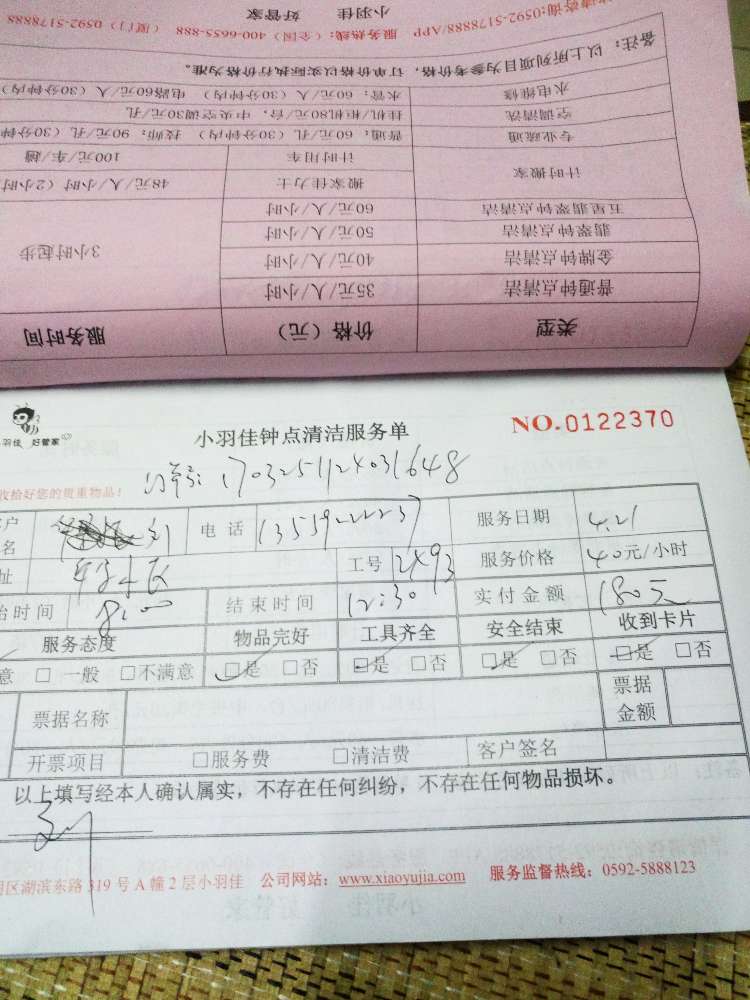 小羽佳 好管家
请咨询:0592-5178888/APP 服务热线:(全国)400-6655-888 (厦门)0592-5178888
备注:以上所列项目为参考价格,订单价格以实际执行价格为准。
水电维修 水管:60元/人(30分钟内) 电路60元/人(30分钟内)
空调清洗 挂机/柜机80元/台,中央空调30元/孔
专业疏通 普通:60元/孔(30分钟内) 技师:90元/孔(30分钟
计时搬家 计时用车 100元/车/趟
搬家佳力士 48元/人/小时(2小时
五星翡翠钟点清洁 60元/人/小时
翡翠钟点清洁 50元/人/小时 3小时起步
金牌钟点清洁 40元/人/小时
普通钟点清洁 35元/人/小时
类型 价格(元) 服务时间
小羽佳 好管家
小羽佳钟点清洁服务单 NO.0122370
订单: 1703251124031648
收拾好您的贵重物品!
户名 刘 电话 13559222237 服务日期 4.21
址 工号 2493 服务价格 40元/小时
始时间 8:00 结束时间 12:30 实付金额 180元
服务态度 物品完好 工具齐全 安全结束 收到卡片
意 □一般 □不满意 □是 □否 □是 □否 □是 □否 □是 □否
票据名称 票据金额
开票项目 □服务费 □清洁费 客户签名
以上填写经本人确认属实,不存在任何纠纷,不存在任何物品损坏。
刘
明区湖滨东路319号A幢2层小羽佳 公司网站:www.xiaoyujia.com 服务监督热线:0592-5888123